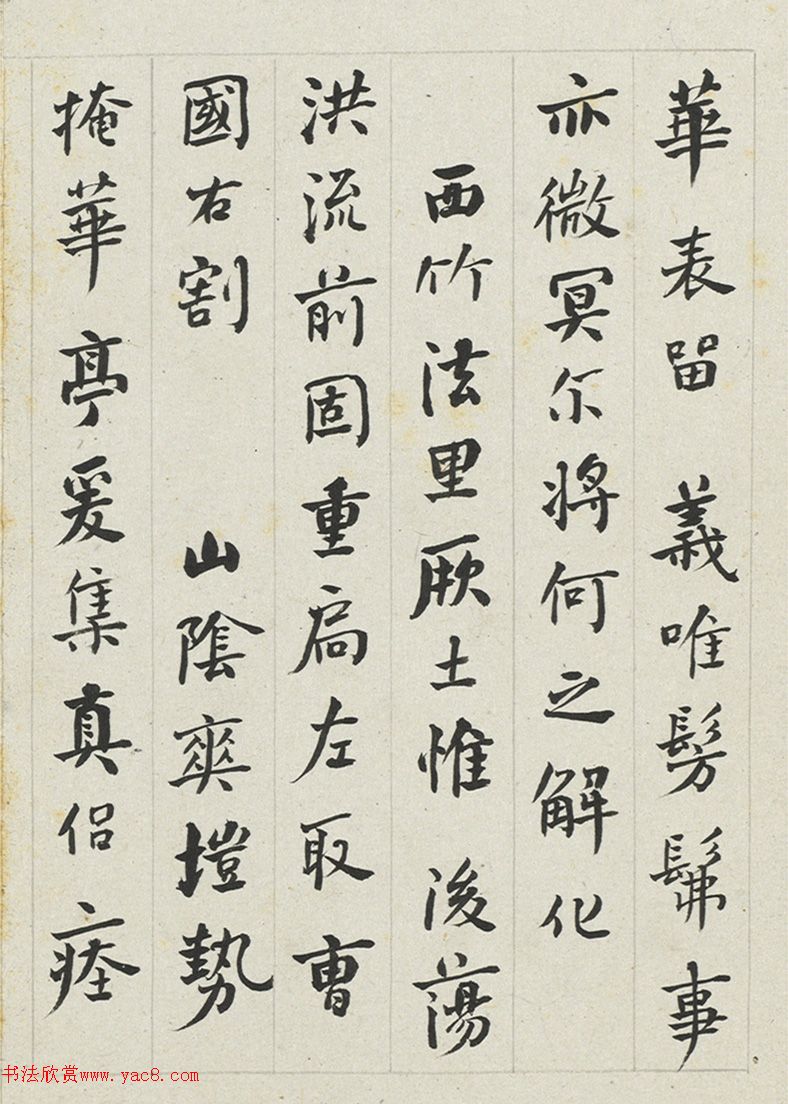 華表留 義唯髣髴事
亦微冥尓將何之解化
西竹法里厥土惟 後蕩
洪流前固重扃左取曹
國右割 山陰爽塏勢
掩華亭爰集真侣瘞
书法欣赏www.yac8.com